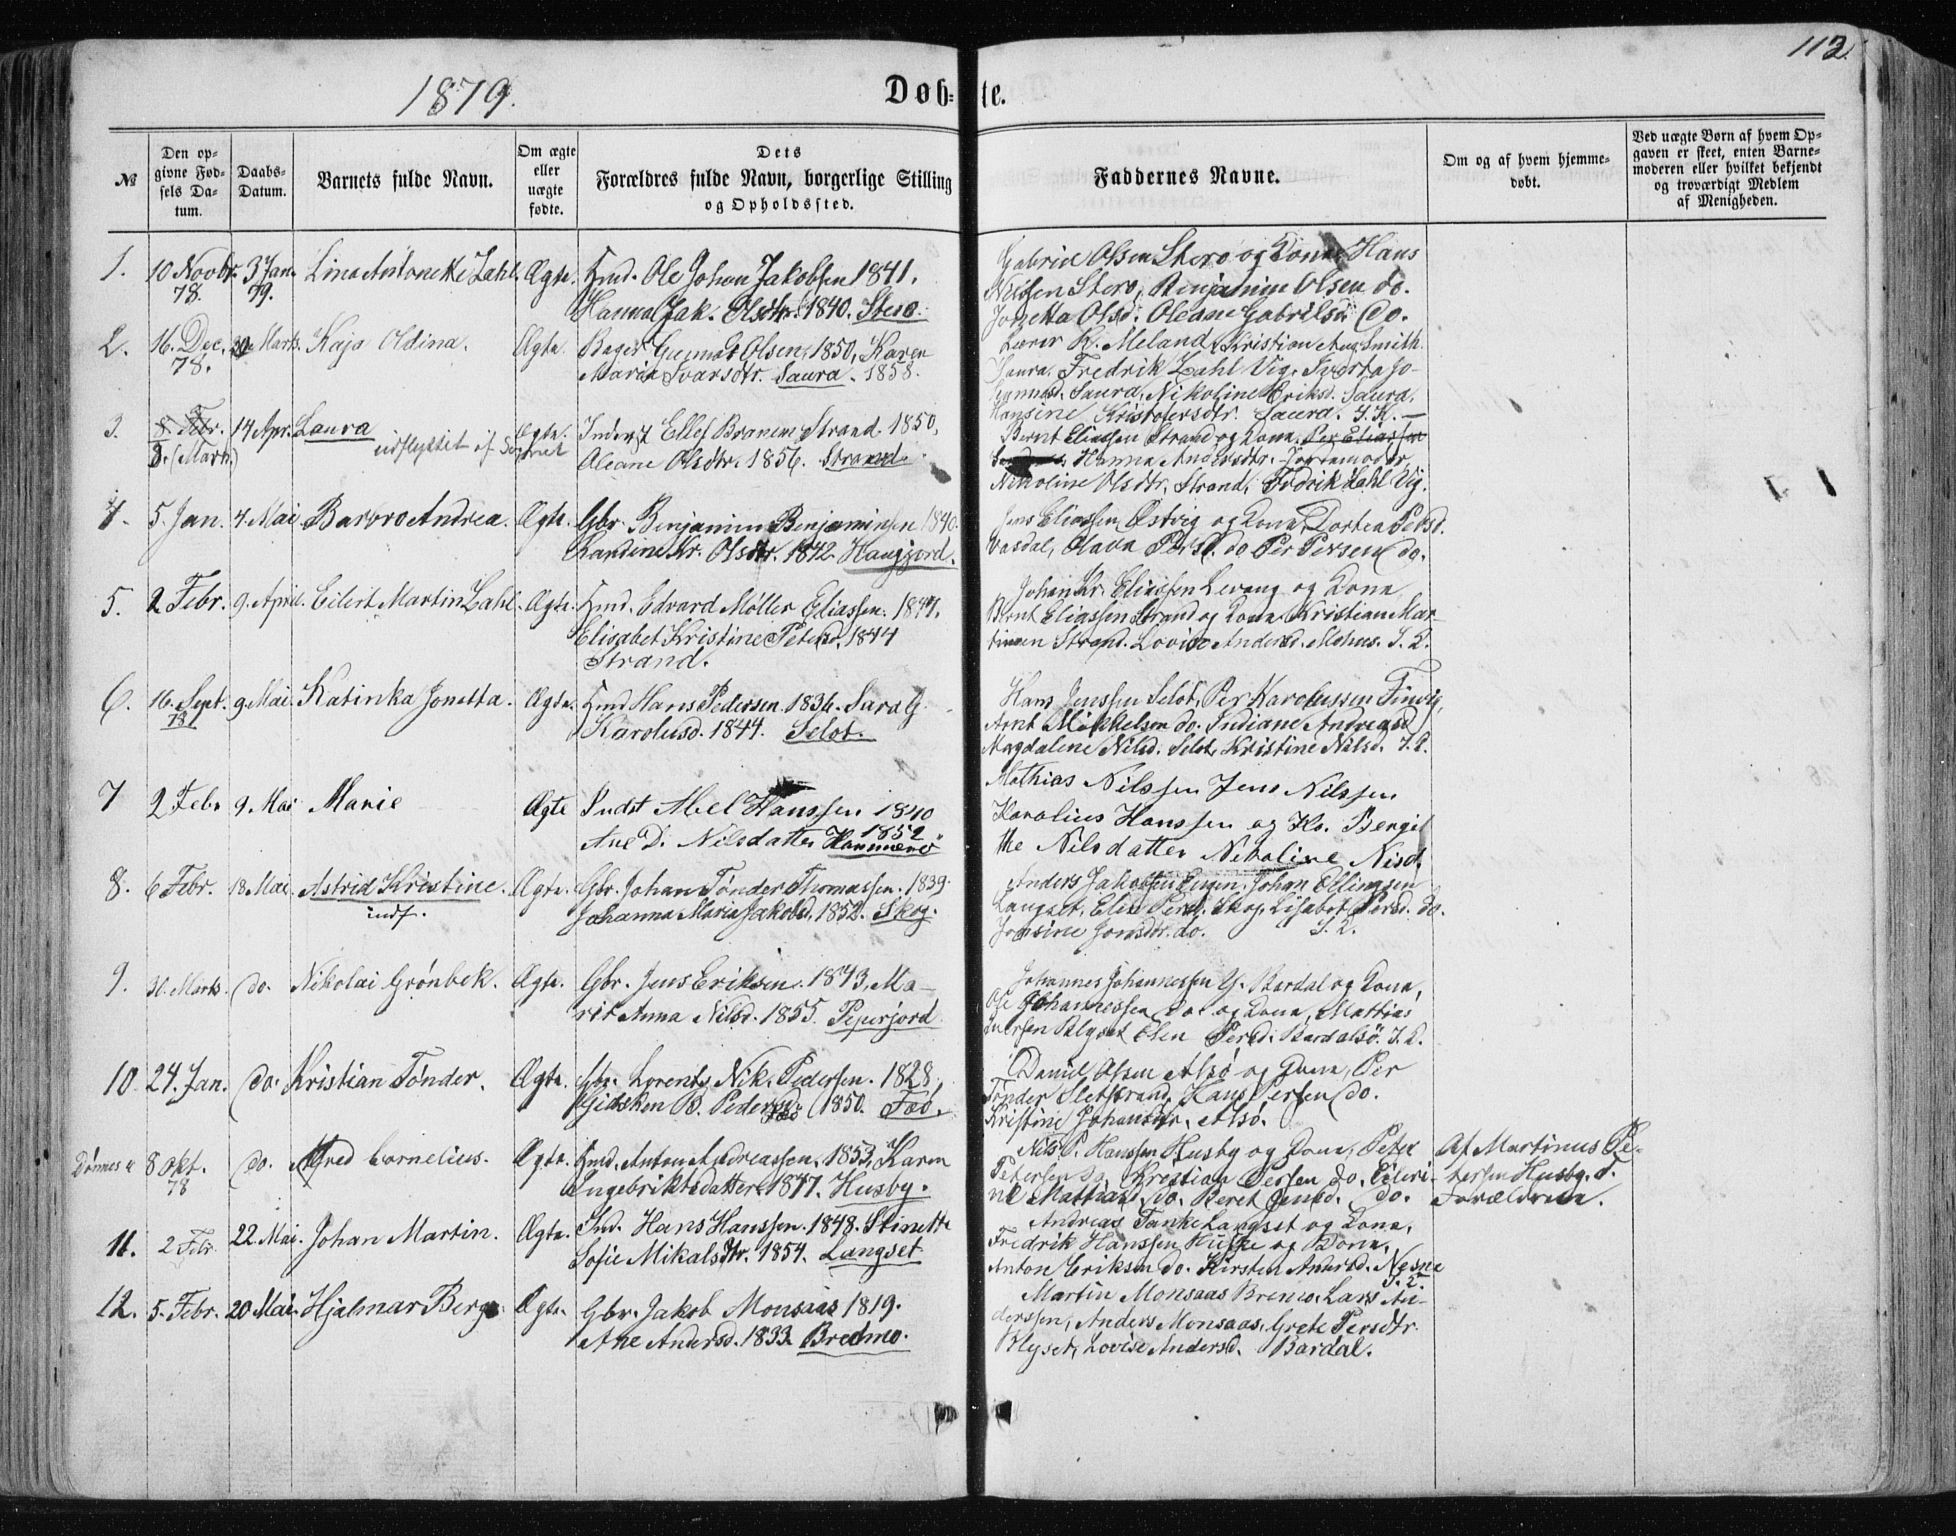 112.
1879.
Døb-te.
№
Den opgivne Fødsels Datum.
Daabs-Datum.
Barnets fulde Navn.
Om ægte eller uægte fødte.
Dets Forældres fulde Navn, borgerlige Stilling og Opholdssted.
Faddernes Navne.
Om og af hvem hjemmedøbt.
Ved uægte Børn af hvem Opgaven er skeet, enten Barnemoderen eller hvilket bekjendt og troværdigt Medlem af Menigheden.
1. 10 Novbr. 78. 3 Jan. 79. Lina Antonette Zahl. Ægte. Hmd. Ole Johan Jakobsen 1841.
Hanna Jak. Olsdtr. 1840. Sterø.
Gabriel Olsen Sterø og Kona, Hans
Nilssen Sterø, Benjamin Olsen do.
Jonetta Olsd. Oleane Gabrilsd. do.
2. 16. Dec. 78. Marts. Kaja Oldina. Ægte. Bager Gunnar Olsen, 1850, Karen
Maria Ivarsdtr. Saura. 1858.
Lærer K. Meland, Kristian Aug. Smith
Saura, Fredrik Zahl Vig,
Saura, Nikoline Eriksd. Saura,
Hansine Kristofersdtr. Saura.
3. 8. Febr. 8. (Marts) 14 Apr. Laura udflyttet af Sognet Ægte. Inderst Ellef Strand 1850,
Oleane Olsdtr. 1856. Strand.
Bernt Eliassen Strand og Kona. Per Eliassen
Hanna Andersdtr. Jortemoder,
Nikoline Olsdtr. Strand, Fredrik Zahl Vig.
4. 5. Jan. 4. Mai Barbro Andrea. Ægte. Gbr. Benjamin Benjaminsen 1840.
Randine Kr. Olsdtr. 1842. Haugjord.
Jens Eliassen Østvig og Kona, Dortea Persd.
Vasdal, Olava Persd. do Per Persen do.
5. 2 Febr. 9. April. Eilert Martin Zahl. Ægte. Hmd. Edvard Møller Eliassen. 1847.
Elisabet Kristine Petersd. 1844
Strand.
Johan Kr. Eliassen Levang og Kona
Bernt Eliassen Strand og Kona Kristian Martinsen Strand. Lovise Andersd.
6. 16. Sept. 78 9. Mai. Katinka Jonetta. Ægte. Hmd Hans Pedersen. 1836. Sara G.
Karolusd. 1844. Seløt.
Hans Jenssen Seløt, Per Karolussen Finvig,
Arnt Mikkelsen do. Indiane Andreasd
Magdalene Nilsd. Seløt, Kristine Nilsd.
7 2 Febr 9. Mai Marie Ægte Indst Abel Hanssen 1840
Ane D. Nilsdatter 1852 Hammerø
Mathias Nilssen Jens Nilssen
Karolius Hanssen og Ko. Bergitthe Nilsdatter Nikoline Nisd.
8. 6 Febr. 18 Mai. Astrid Kristine. indf. Ægte. Gbr. Johan Tønder Thomassen. 1839.
Johanna Maria Jakobsd. 1852. Skog.
Anders Jakobsen Johan Ellingsen
Langset, Elis Persd. Skog, Lisabet Persd. do.
Jonsine Jonsdtr. do.
9. 30. Marts. do. Nikolai Grønbek. Ægte. Gbr. Jens Eriksen. 1843, Marit Anna Nilsd. 1855. Peperjord
Johannes Johannessen Y. Bardal og Kona,
Ole Johannessen do og Kona, Mattias
Iversen Blyset Elen Persd. Bardalsø.
10. 24. Jan. do. Kristian Tønder. Ægte. Gbr. Lorents Nik. Pedersen. 1828,
Gidsken B. Pedersd. 1850. Fæø.
Daniel Olsen Alsø og Kona, Per
Tønder Sletstrand, Hans Persen do.
Kristine Johansdtr. Alsø.
Dønnes 8 Okt. 78 do. Alfred Cornelius. Ægte. Hmd. Anton Andreassen. 1853, Karen
Ingebriktsdatter 1847. Husby.
Nils P. Hanssen Husby og Kona, Peter
Petersen do, Krestian Persen do. Beret do.
Af Martinus Petersen Husby. d. Forældrene.
11. 2 Febr 22. Mai. Johan Martin. Ægte. Ind. Hans Hanssen. 1848. Stinette
Sofie Mikalsdtr. 1854. Langset.
Andreas Tanke Langset og Kona,
Fredrik Hanssen og Kona,
Anton Eriksen do. Kirsten Andersd. Nesna
12. 5. Febr. 20 Mai. Hjalmar Berg Ægte. Gbr. Jakob Monsaas 1819.
Ane Andersd. 1833. Bredmo.
Martin Monsaas Bremo. Lars Anderssen, Anders Monsaas, Grete Persdtr.
Blyset, Lovise Andersd. Bardal.